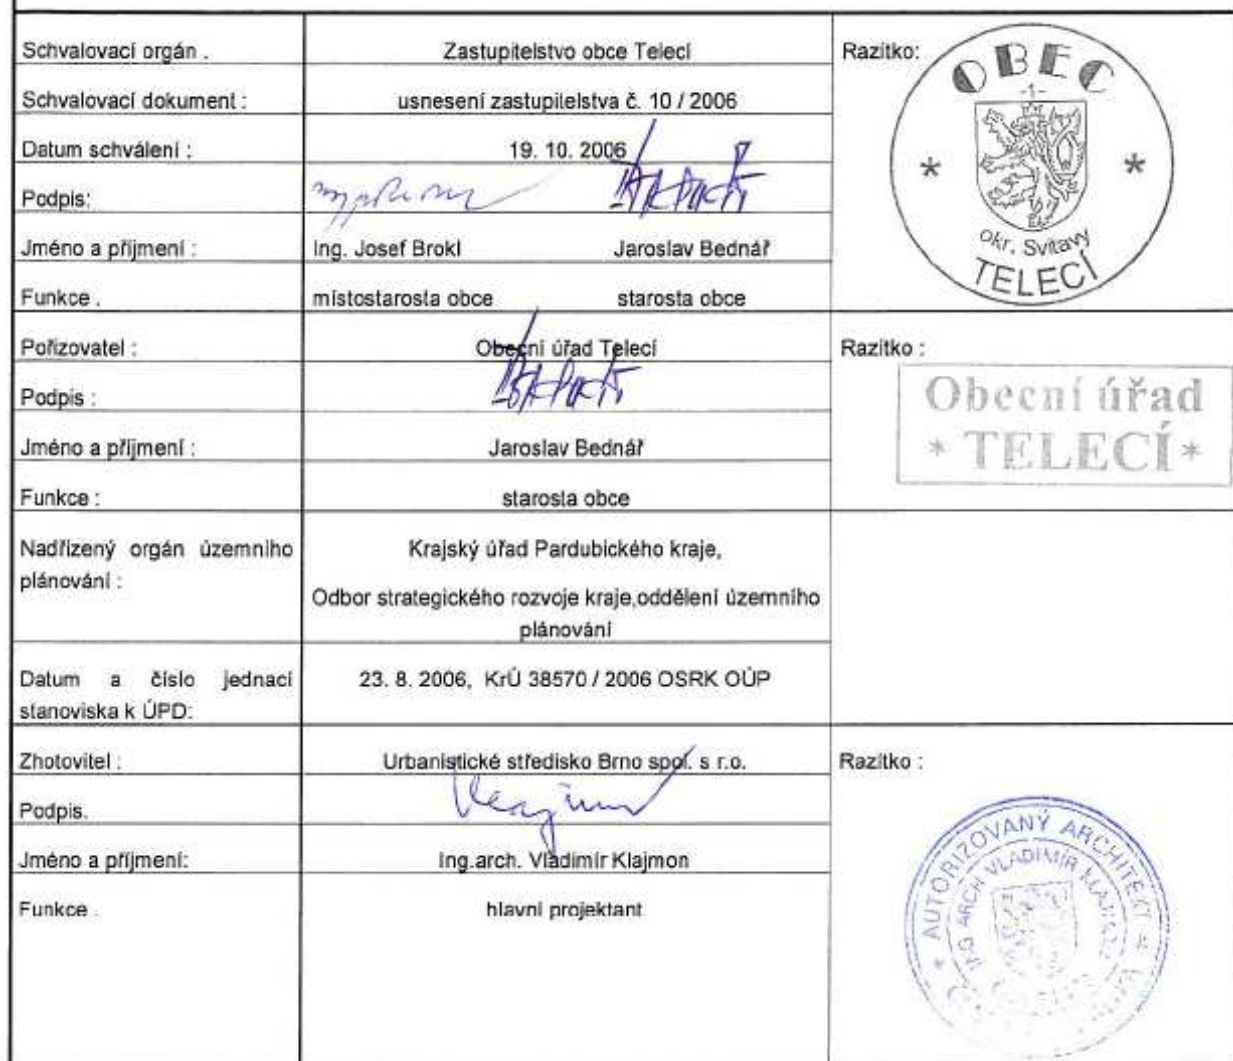 Schvalovací orgán .
Zastupitelstvo obce Telecí
Razítko:
OBEC
-1-
* *
okr. Svitavy
TELECÍ
Schvalovací dokument :
usnesení zastupitelstva č. 10 / 2006
Datum schválení :
19. 10. 2006
Podpis:
Jméno a příjmení :
Ing. Josef Brokl Jaroslav Bednář
Funkce .
místostarosta obce starosta obce
Pořizovatel :
Obecní úřad Telecí
Razítko :
Obecní úřad
* TELECÍ *
Podpis :
Jméno a příjmení :
Jaroslav Bednář
Funkce :
starosta obce
Nadřízený orgán územního
plánování :
Krajský úřad Pardubického kraje,
Odbor strategického rozvoje kraje,oddělení územního
plánování
Datum a číslo jednací
stanoviska k ÚPD:
23. 8. 2006, KrÚ 38570 / 2006 OSRK OÚP
Zhotovitel :
Urbanistické středisko Brno spol. s r.o.
Razítko :
Podpis.
Jméno a příjmení:
Ing.arch. Vladimír Klajmon
Funkce .
hlavní projektant
* AUTORIZOVANÝ ARCHITEKT *
ARCH VLADIMÍR